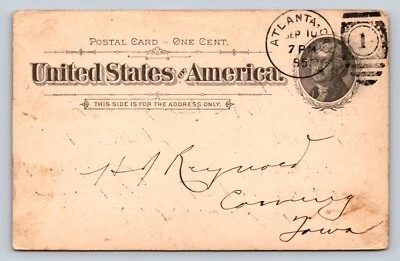 POSTAL CARD - ONE CENT.
United States of America.
THIS SIDE IS FOR THE ADDRESS ONLY.
ATLANTA, G
SEP 10
7 PM
95
1
H J Reynold
Corning
Iowa